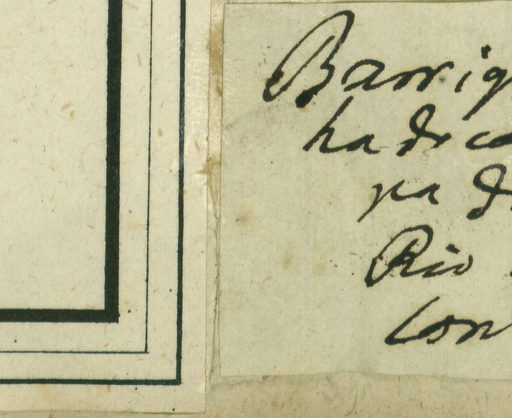 Barrig
ha de ca
pa d
Rio
Con